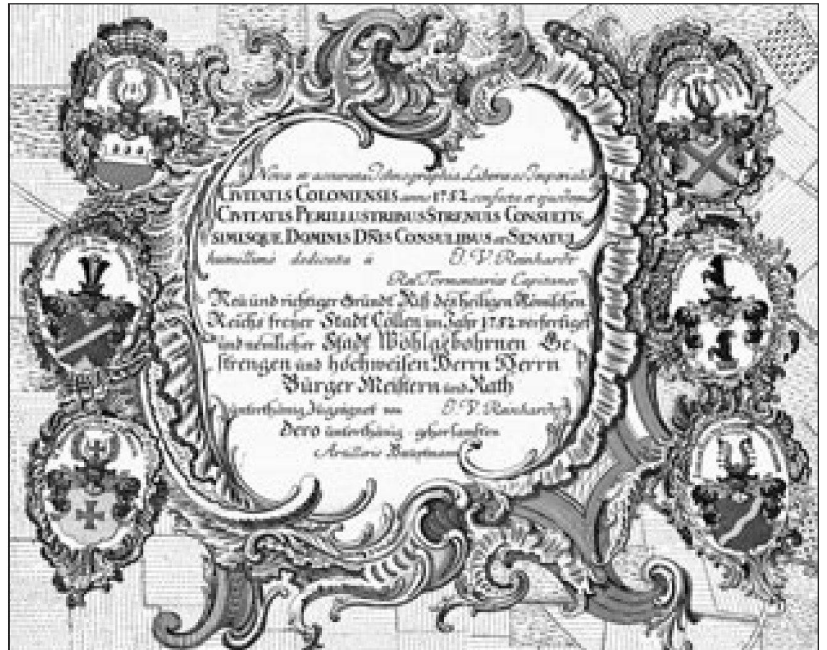 Nova et accurata Ichnographia Liberae ac Imperialis
CIVITATIS COLONIENSIS anno 1752 confecta et ejusdem
CIVITATIS PERILLUSTRIBUS STRENUIS CONSULTIS
SIMISQUE DOMINIS DÑIS CONSULIBUS et SENATUI
humillimè dedicata à J. V. Reinhardt
Rei Tormentariae Capitaneo
Neü und richtiger Gründt Riß des heiligen Römischen
Reichs freyer Stadt Cöllen im Jahr 1752 verfertiget
und nemlicher Stadt Wohlgebohrnen Ge
strengen und hochweisen Herrn Herrn
Bürger Meistern und Rath
ünterthänig Zugeignet von J. V. Reinhardt
Dero ünterthänig gehorsambsten
Artillerie Hauptmann